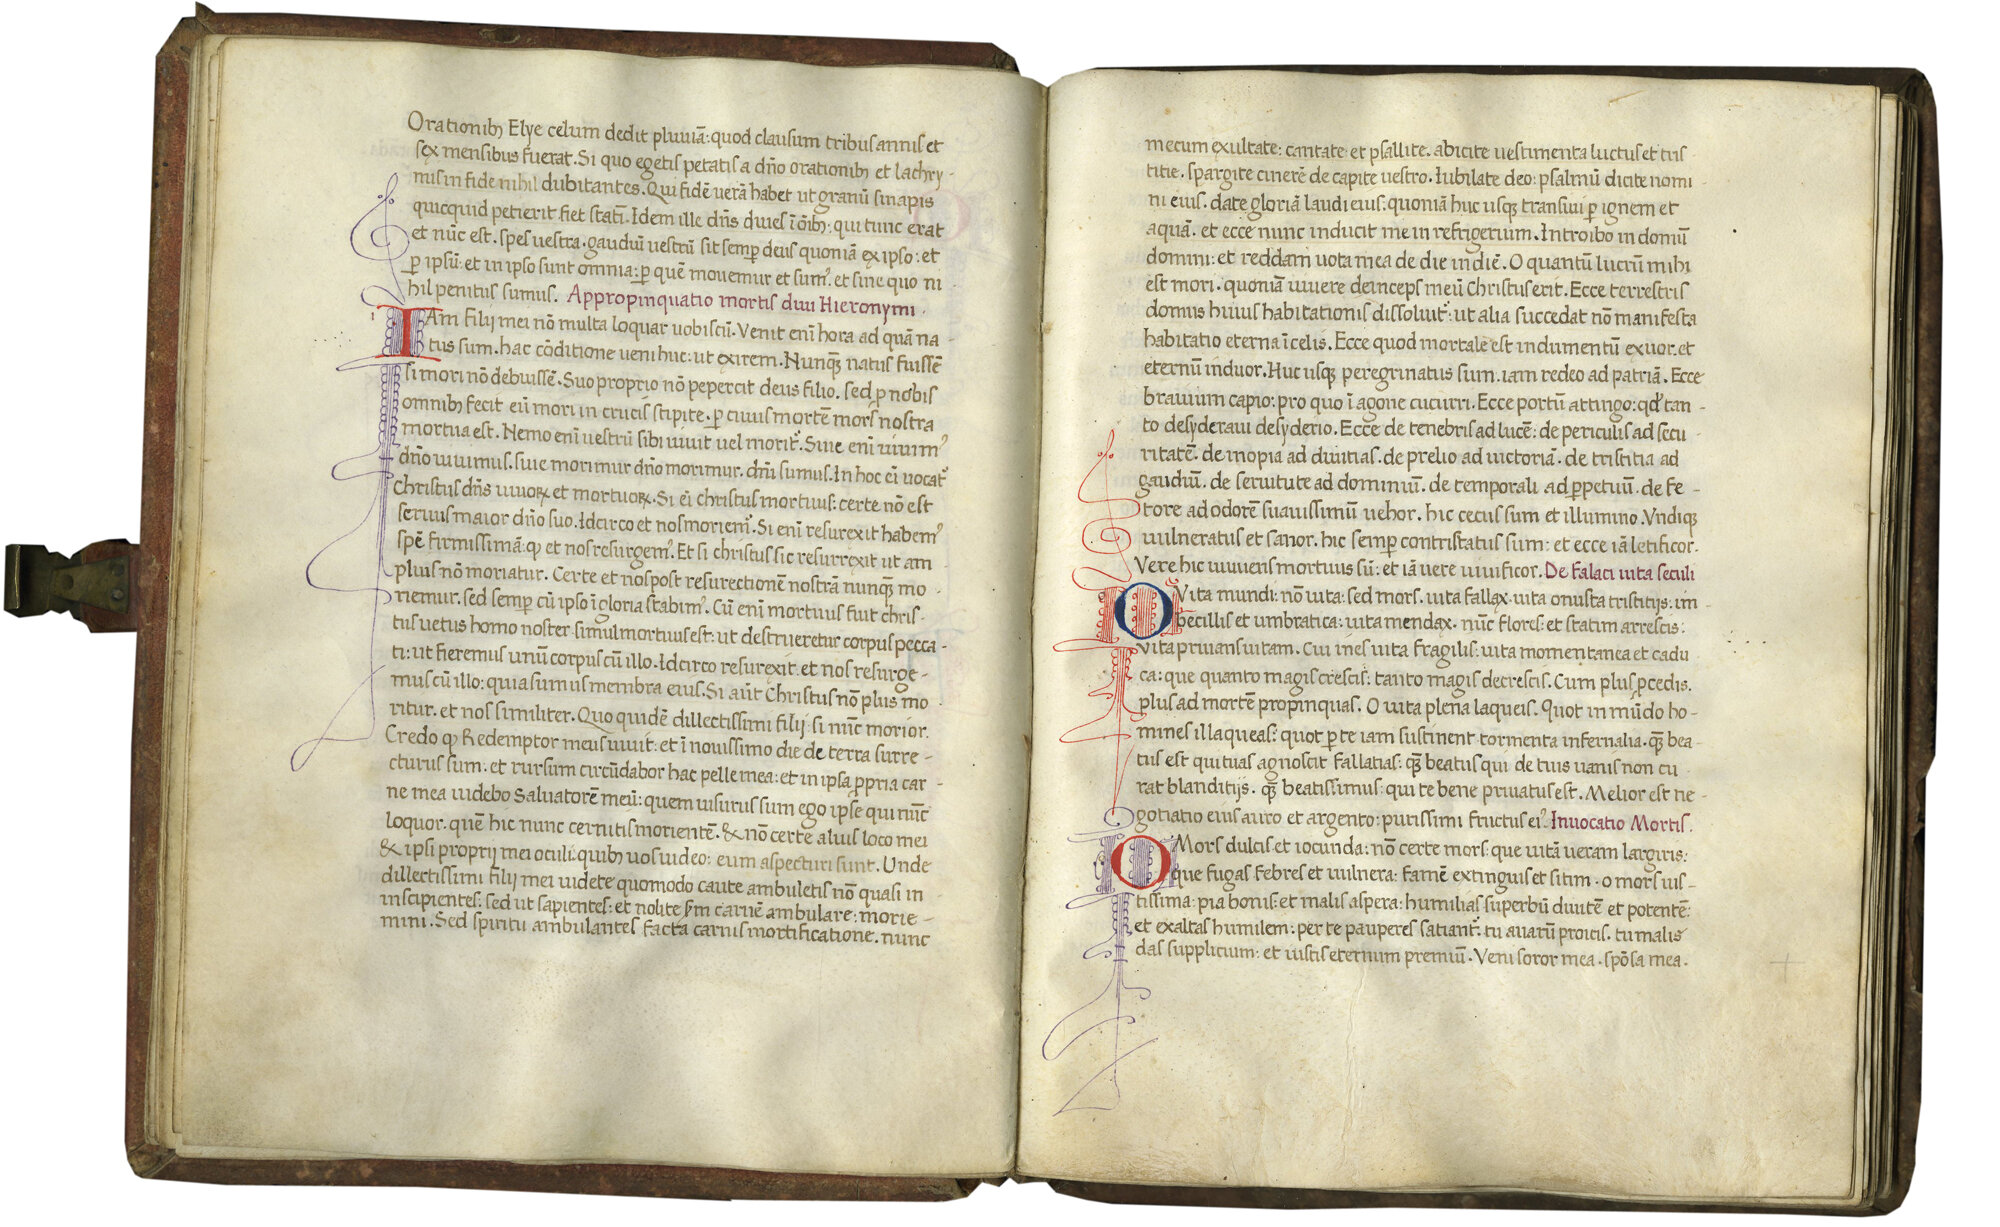 Orationibꝫ Elye celum dedit pluuiā: quod clausum tribus annis et
sex mensibus fuerat. Si quo egetis petatis a dño orationibꝫ et lachry-
mis in fide nihil dubitantes. Qui fidē verā habet ut granū sinapis
quicquid petierit fiet statī. Idem ille dñs diues ī oībꝫ: qui tunc erat
et nūc est. spes uestra. gaudiū uestrū sit semꝑ deus quoniā ex ipso: et
ꝑ ipsū: et in ipso sunt omnia: ꝑ quē mouemur et sumꝰ. et sine quo ni
hil penitus sumus. Appropinquatio mortis diui Hieronymi.
IAm Filij mei nō multa loquar uobiscū. Venit enī hora ad quā na
tus sum. hac cōditione ueni huc: ut exirem. Nunqꝫ natus fuissē
si mori nō debuissē. Suo proprio nō pepercit deus filio. sed ꝓ nobis
omnibꝫ fecit eū mori in crucis stipite. ꝑ cuius mortē mors nostra
mortua est. Nemo enī uestrū sibi uiuit uel moritᷣ. Siue enī uiuimꝰ
dño uiuimus. siue morimur dño morimur. dñi sumus. In hoc eī uocatᷣ
Christus dñs uiuoꝝ et mortuoꝝ. Si eī christus mortuus: certe nō est
seruus maior dño suo. Idcirco et nos moriemᷣ. Si enī resurexit habemꝰ
spē firmissimā: ꝙ et nos resurgemꝰ. Et si christus sic resurrexit ut am
plius nō moriatur. Certe et nos post resurectionē nostrā nunqꝫ mo
riemur. sed semꝑ cū ipso ī gloria stabimꝰ. Cū enī mortuus fuit chris-
tus uetus homo noster simul mortuus est: ut destrueretur corpus pecca-
ti: ut fieremus unū corpus cū illo. Idcirco resurexit et nos resurge-
mus cū illo: quia sumus membra eius. Si aūt Christus nō plus mo
ritur. et nos similiter. Quo quidē dillectissimi filij si nūc morior.
Credo ꝙ Redemptor meus uiuit: et ī nouissimo die de terra surre-
cturus sum: et rursum circūdabor hac pelle mea: et in ipsa ꝓpria car-
ne mea uidebo Saluatorē meū: quem uisurus sum ego ipse qui nūc
loquor. quē hic nunc cernitis morientē. & nō certe aliuis loco mei
& ipsi proprij mei oculi: quibꝫ uos uideo: eum aspecturi sunt. Unde
dillectissimi filij mei uidete quomodo caute ambuletis nō quasi in
inscipientes: sed ut sapientes: et nolite ẜm carnē ambulare: morie-
mini. Sed spiritu ambulantes facta carnis mortificatione. nunc
mecum exultate: cantate et psallite. abicite uestimenta luctus et tris-
titie. spargite cinerē de capite uestro. Iubilate deo: psalmū dicite nomi-
ni eius. date gloriā laudi eius: quoniā huc usqꝫ transiui ꝑ ignem et
aquā. et ecce nunc inducit me in refrigerium. Introibo in domū
domini: et reddam uota mea de die in diē. O quantū lucrū mihi
est mori. quoniā uiuere deinceps meū Christus erit. Ecce terrestris
domus huius habitationis dissoluitᷣ: ut alia succedat nō manifesta
habitatio eterna ī celis. Ecce quod mortale est indumentū exuor. et
eternū induor. Huc usqꝫ peregrinatus sum. iam redeo ad patriā. Ecce
brauium capio: pro quo ī agone cucurri. Ecce portū attingo: qđ tan-
to desyderaui desyderio. Ecce de tenebris ad lucē: de periculis ad secu
ritatē. de inopia ad diuitias. de prelio ad uictoriā. de tristitia ad
gaudiū. de seruitute ad dominiū. de temporali ad ꝑpetuū. de fe-
tore ad odorē suauissimū uehor. hic cecus sum et illumino. Vndiqꝫ
uulneratus et sanor. hic semꝑ contristatus sum: et ecce iā letificor.
Vere hic uiuuens mortuus sū: et iā uere uiuificor. De falaci uita seculi
O Vita mundi: nō uita: sed mors. uita fallax. uita onusta tristitijs: im
becillis et umbratica: uita mendax. nūc flores: et statim arrescis:
vita priuans uitam. Cui ines uita fragilis: uita momentanea et cadu
ca: que quanto magis crescis: tanto magis decrescis. Cum plus ꝓcedis.
plus ad mortē propinquas. O uita plena laqueis. Quot in mūdo ho-
mines illaqueas: quot ꝑ te iam sustinent tormenta infernalia. qꝫ bea-
tus est qui tuas agnoscit fallatias: qꝫ beatus qui de tuis uanis non cu
rat blanditijs. qꝫ beatissimus: qui te bene priuatus est. Melior est ne-
gotiatio eius auro et argento: purissimi fructus eiꝰ. Inuocatio Mortis.
O Mors dulcis et iocunda: nō certe mors: que uitā ueram largiris:
que fugas febres et uulnera: famē extinguis et sitim. o mors iis-
tissima: pia bonis: et malis aspera: humilias superbū diuitē et potentē:
et exaltas humilem: per te pauperes satiantᷣ: tu auarū proicis. tu malis
das supplicium: et iustis eternum premiū. Veni soror mea. spōsa mea.